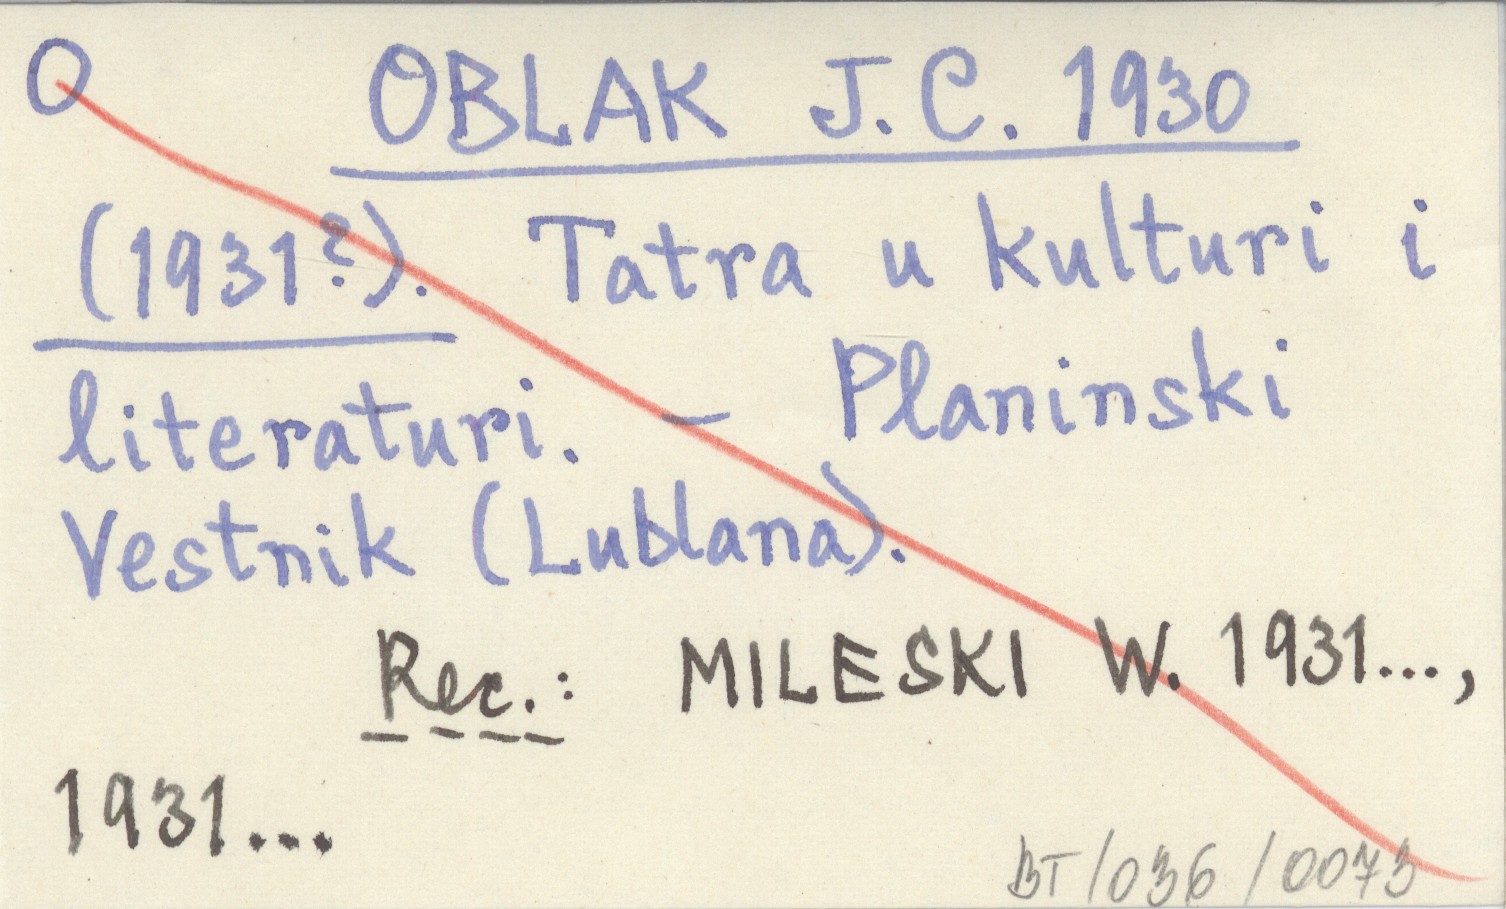 O OBLAK J. C. 1930
(1931?). Tatra u kulturi i
literaturi. – Planinski
Vestnik (Lublana).
Rec.: MILESKI W. 1931...,
1931...
BT/036/0073